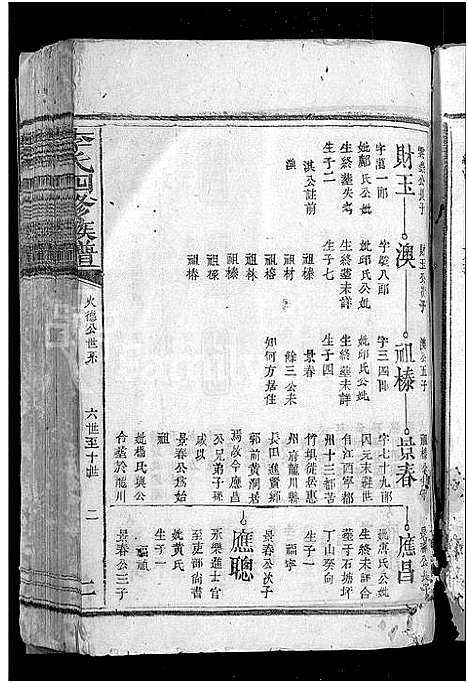 李氏四修族譜
火德公世系
六世至十世
二
雲嶽公長子
財玉
字萬一郎
妣鄺氏公妣
生終墓失考
生子二
淇公註前
澳
財玉公次子
澳
字癸八郎
妣邱氏公妣
生終墓未詳
生子七
祖榛
祖村
祖林
祖榛
澳公五子
祖榛
字三四郎
妣邱氏公妣
生終墓未詳
生子四
景春
餘三公未
知何方居住
景春
字七十九郎
因元末離世
自江西寧都
州十三都苦
竹垻徙於惠
州府龍川縣
長田進賢鄉
郭前黃洞居
焉故今應昌
公兄弟子孫
咸以
景春公為始
妣楊氏與公
合墓於龍川
應昌
妣唐氏公妣
生終未詳合
墓于石塘坪
丁山癸向
生子一
祖寧
景春公次子
應聰
永樂進士官
至吏部尚書
妣黃氏
生子一
福頑
景春公三子